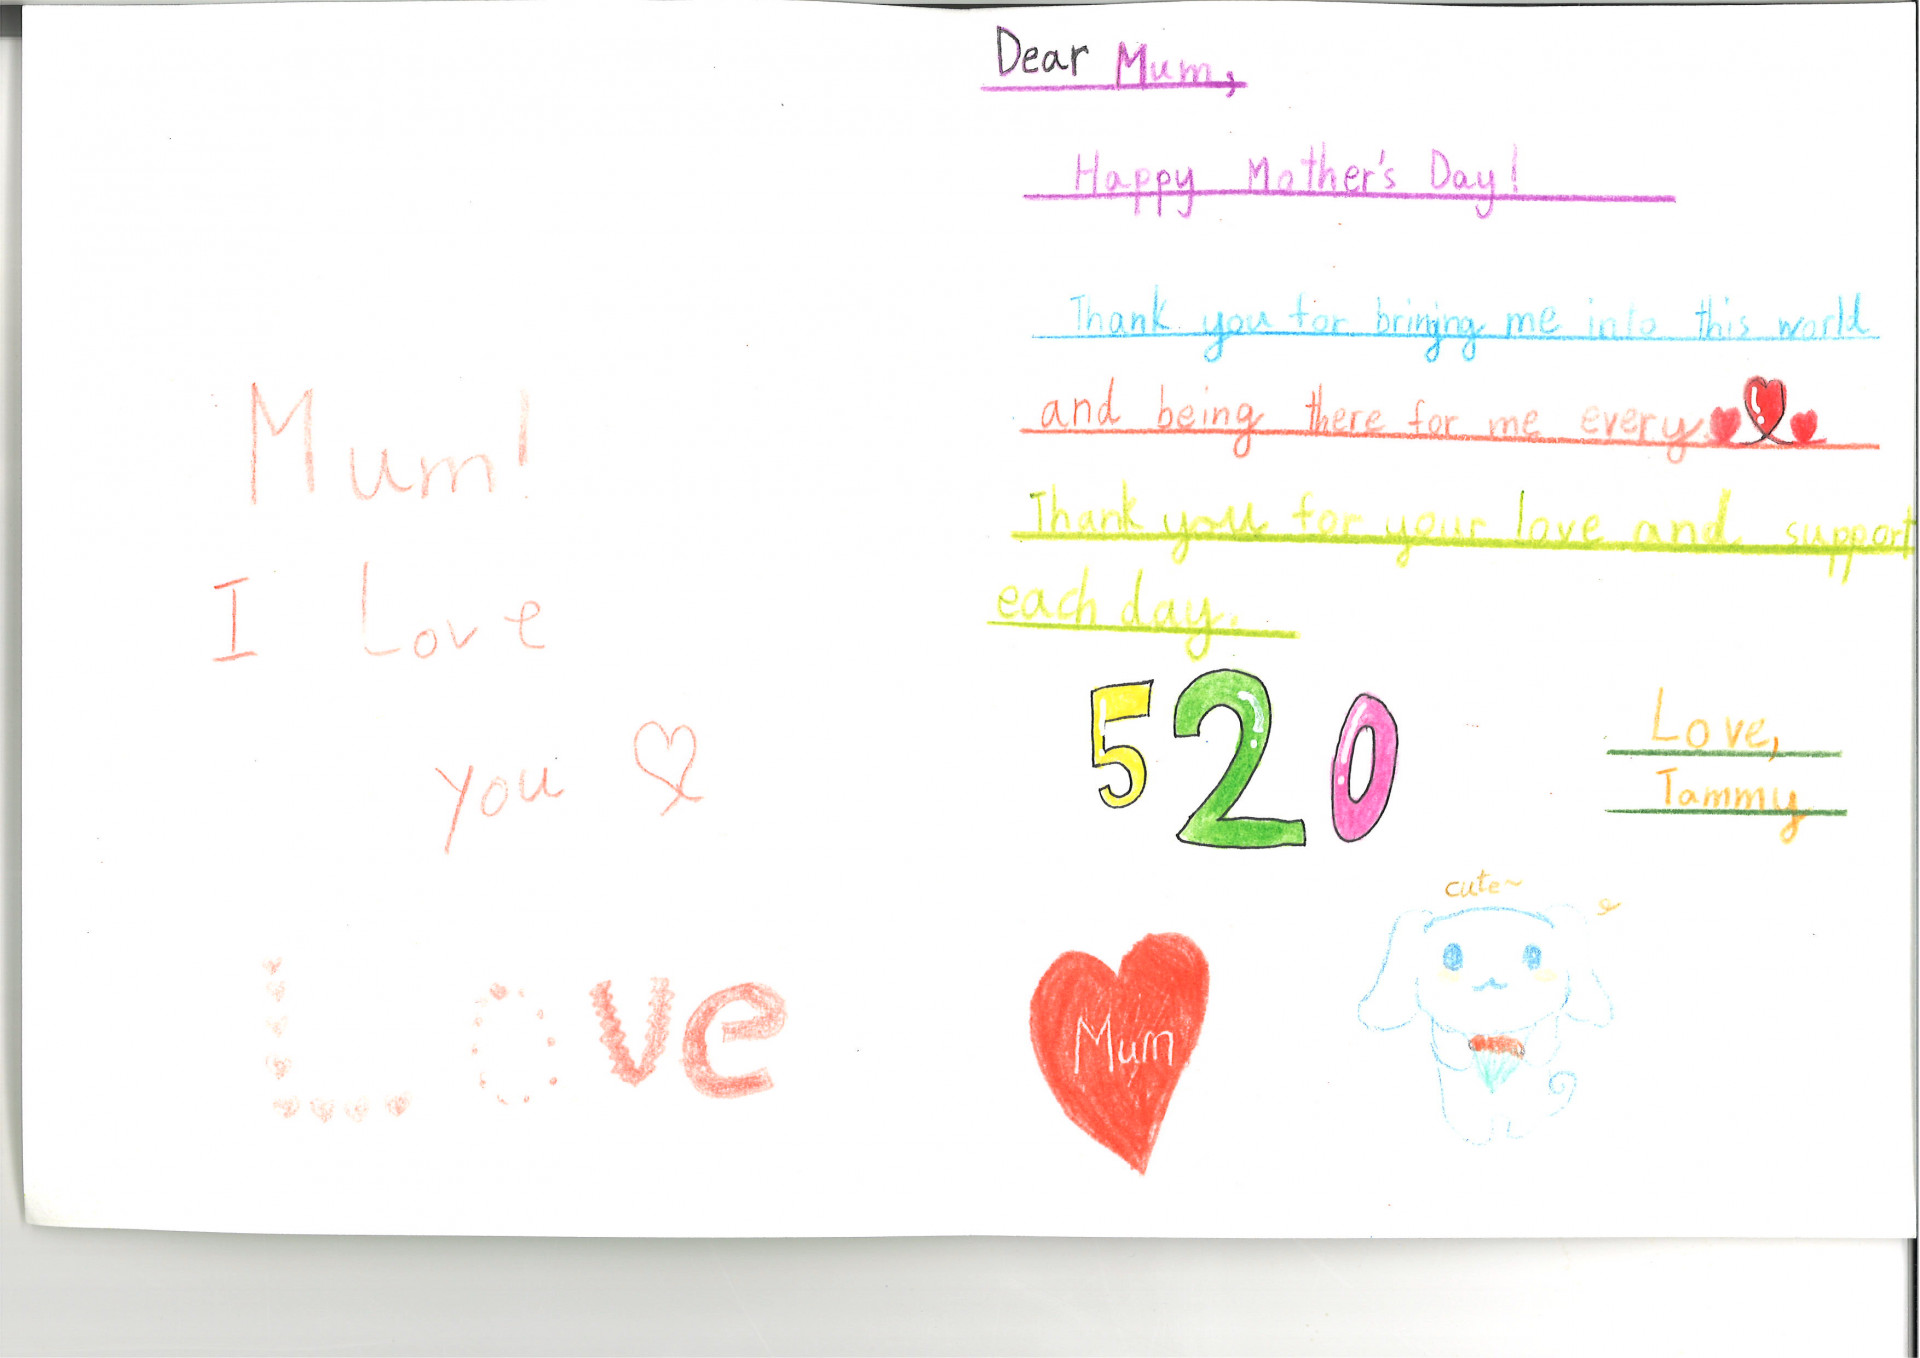 Mum!
I Love
you
Love
Dear Mum,
Happy Mother's Day!
Thank you for bringing me into this world
and being there for me every
Thank you for your love and support
each day.
520
Love,
Tammy
cute~
Mum